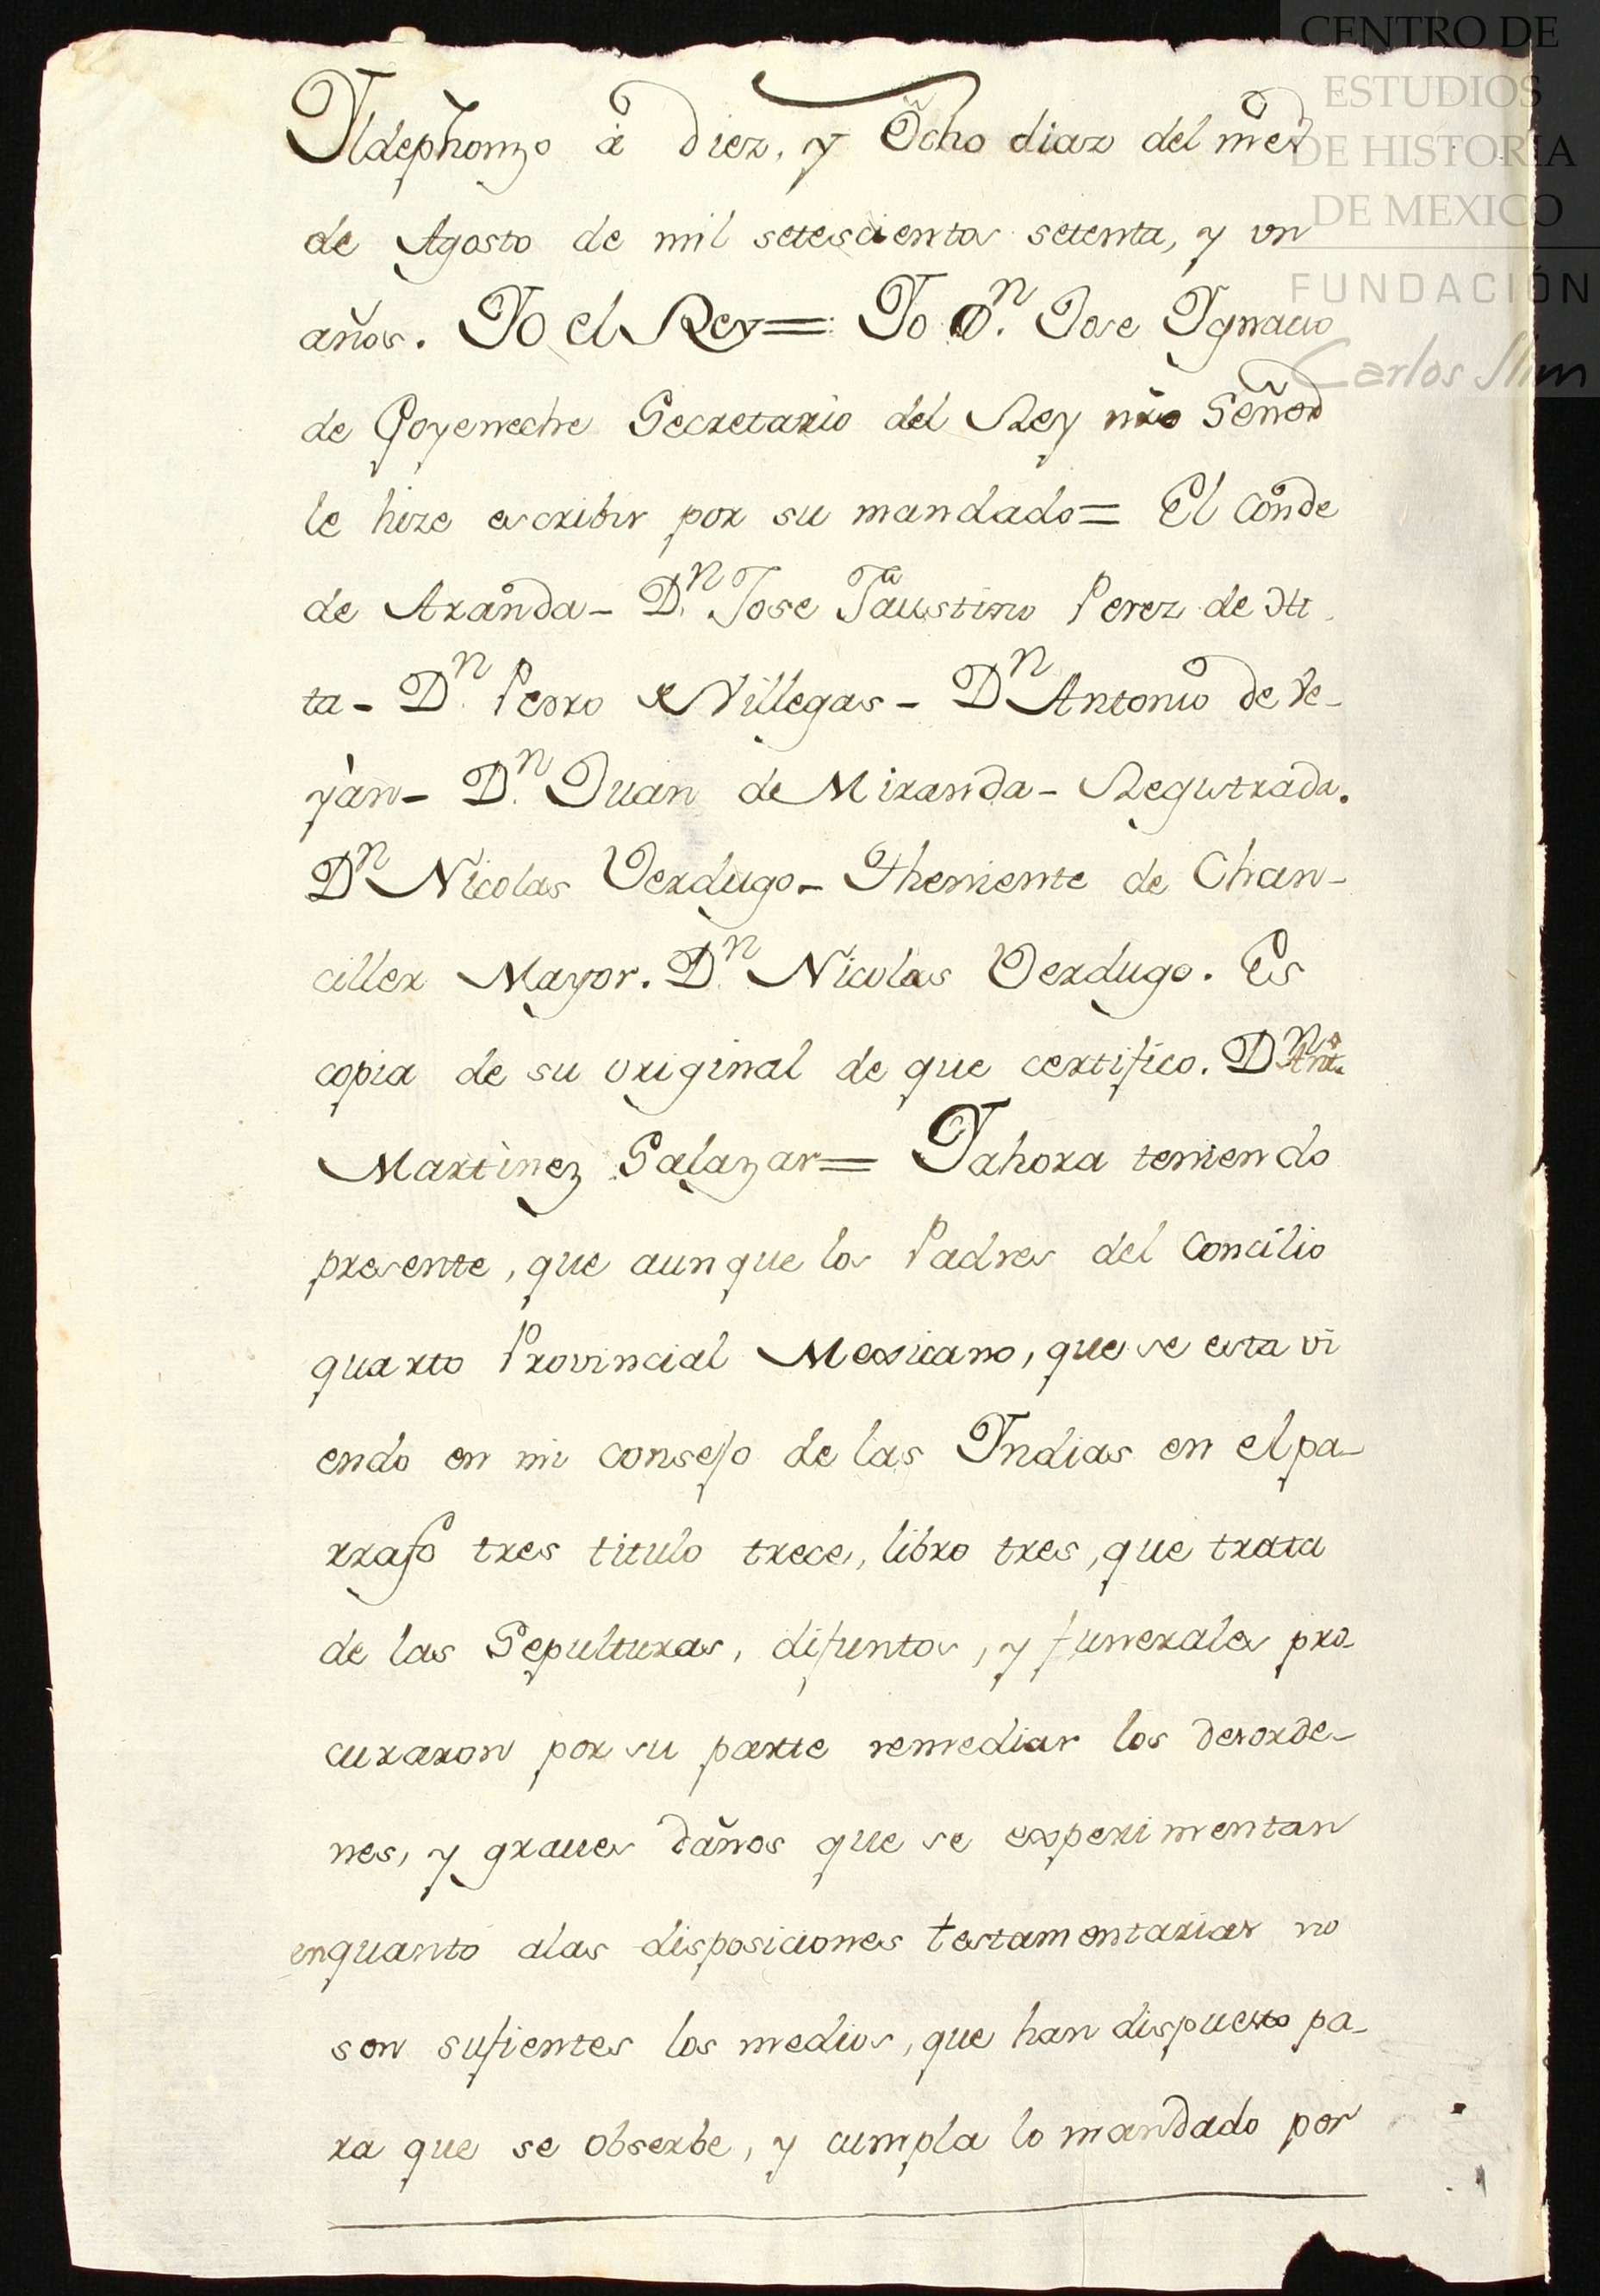 CENTRO DE
ESTUDIOS
DE HISTORIA
DE MEXICO
FUNDACIÓN
Carlos Slim
Yldephonzo à diez, y Ocho dias del mes
de Agosto de mil setescientos setenta, y un
años. Yo el Rey = Yo Dn. Jose Ygnacio
de Goyeneche Secretario del Rey nro Señor
le hize escribir por su mandado = El Conde
de Aranda - Dn. Jose Faustino Perez de Hi
ta - Dn. Pedro de Villegas - Dn Antonio de Ve-
yàn - Dn. Juan de Miranda - Registrada.
Dn Nicolas Verdugo - Theniente de Chan-
ciller Mayor. Dn. Nicolas Verdugo. Es
copia de su original de que certifico. Dn Anto.
Martinez Salazar = Yahora teniendo
presente, que aunque los Padres del Concilio
quarto Provincial Mexicano, que se esta vi
endo en mi consejo de las Yndias en el pa-
rrafo tres titulo trece, libro tres, que trata
de las Sepulturas, difuntos, y funerales pro-
curaron por su parte remediar los desorde-
nes, y graves daños que se experimentan
enquanto alas disposiciones testamentarias no
son sufientes los medios, que han dispuesto pa-
ra que se obserbe, y cumpla lo mandado por